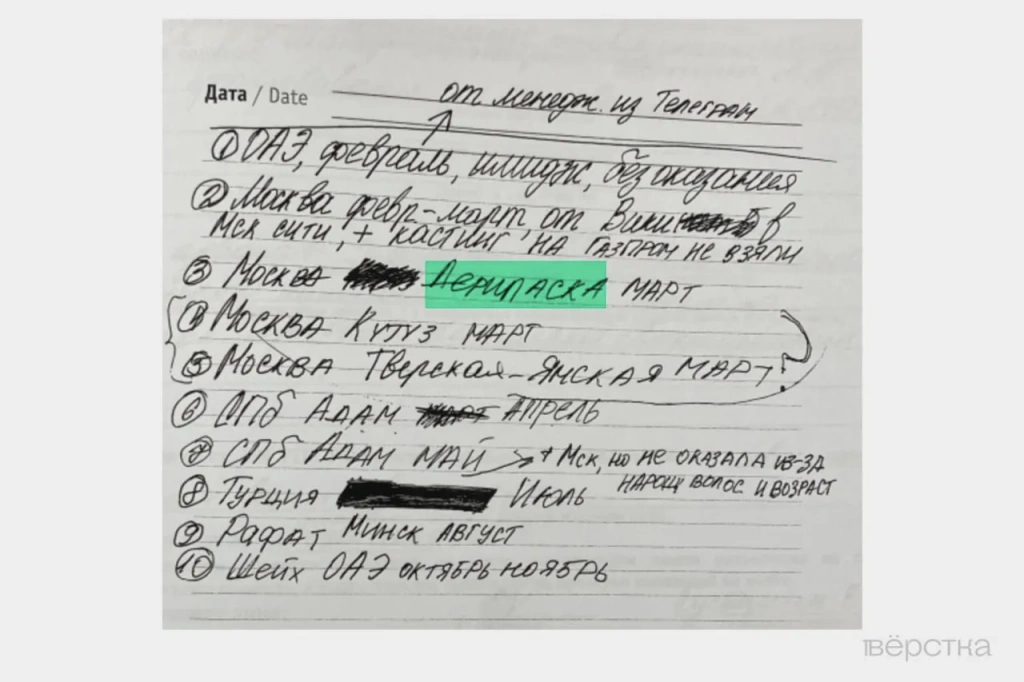 Дата / Date
от менедж. из Телеграм
① ОАЭ, февраль, имидж, без оказания
② Москва февр-март от Вики в
Мск сити, + кастинг на газпром не взяли
③ Москва Дерипаска март
④ Москва Кутуз март
⑤ Москва Тверская-Ямская март
⑥ СПб Адам апрель
⑦ СПб Адам май → + Мск, но не оказала из-за
нарощ волос и возраст
⑧ Турция Июль
⑨ Рафат Минск август
⑩ Шейх ОАЭ октябрь ноябрь
вёрстка